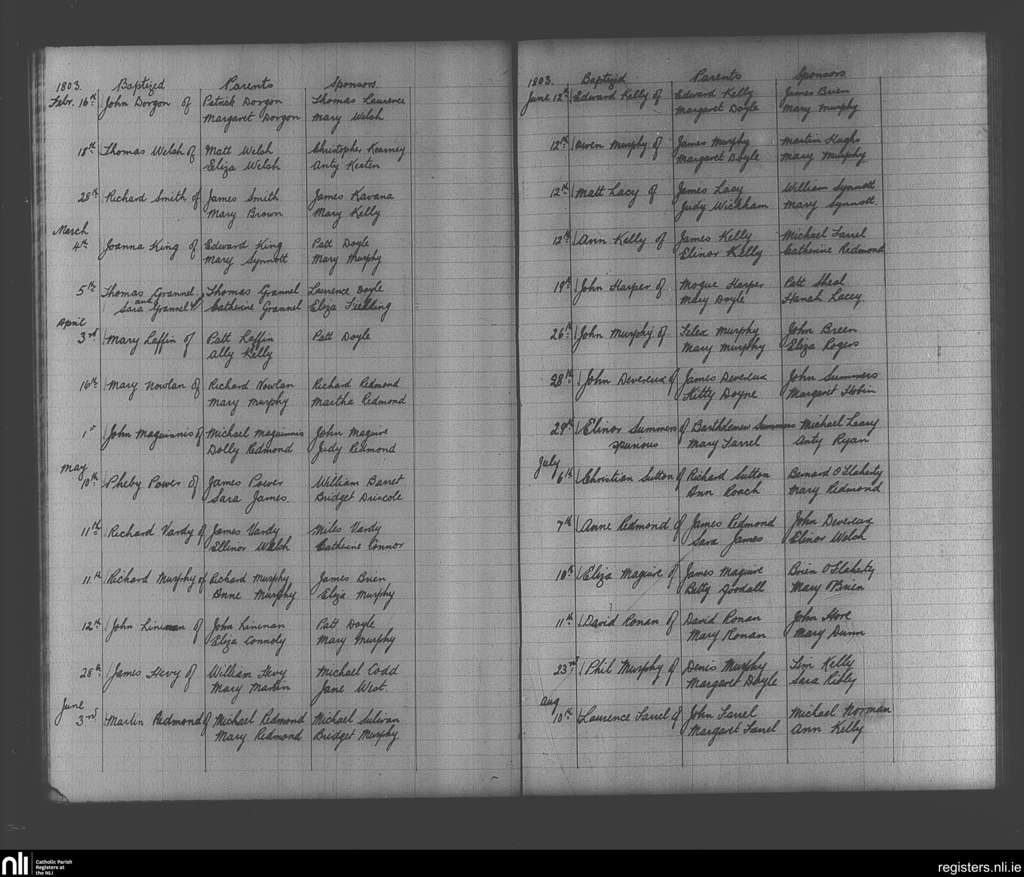 1803. Baptized Parents Sponsors
Febr. 16th John Dorgon of Patrick Dorgon Thomas Laurence
Margaret Dorgon Mary Welsh
18th Thomas Welsh of Matt Welsh Christopher Kearney
Eliza Welsh Anty Keaten
28th Richard Smith of James Smith James Kavana
Mary Brown Mary Kelly
March
4th Joanna King of Edward King Patt Doyle
Mary Synnott Mary Murphy
5th Thomas Grannel Thomas Grannel Laurence Doyle
and Sara Grannel of Catherine Grannel Eliza Fielding
April
3rd Mary Laffin of Patt Laffin Patt Doyle
Ally Kelly
16th Mary Nowlan of Richard Nowlan Richard Redmond
Mary Murphy Martha Redmond
1st John Maguinnis of Michael Maguinnis John Maguire
Dolly Redmond Judy Redmond
May
10th Pheby Power of James Power William Barret
Sara James Bridget Driscole
11th Richard Vardy of James Vardy Miles Vardy
Ellinor Walsh Catherine Connor
11th Richard Murphy of Richard Murphy James Brien
Anne Murphy Eliza Murphy
12th John Linenan of John Linenan Patt Doyle
Eliza Connoly Mary Murphy
28th James Hevy of William Hevy Michael Codd
Mary Martin Jane West.
June
3rd Martin Redmond of Michael Redmond Michael Sulivan
Mary Redmond Bridget Murphy
1803. Baptized Parents Sponsors
June 12th Edward Kelly of Edward Kelly James Brien
Margaret Doyle Mary Murphy
12th Owen Murphy of James Murphy Martin Hughs
Margaret Doyle Mary Murphy
12th Matt Lacy of James Lacy William Synnott
Judy Wickham Mary Synnott
12th Ann Kelly of James Kelly Michael Farrel
Elinor Kelly Catherine Redmond
19th John Harper of Mogue Harper Patt Sheal
Mary Doyle Hanah Lacey
26th John Murphy of Felex Murphy John Breen
Mary Murphy Eliza Rogers
28th John Devereux of James Devereux John Summers
Kitty Doyne Margaret Hobin
29th Elinor Summers of Barthlemew Summers Michael Leary
spurious Mary Farrel Anty Ryan
July
6th Christian Sutton of Richard Sutton Bernard O'Flaherty
Ann Roach Mary Redmond
7th Anne Redmond of James Redmond John Devereux
Sara James Elinor Welsh
10th Eliza Maguire of James Maguire Brien O'Flaherty
Betty Goodall Mary O'Brien
11th David Ronan of David Ronan John Hore
Mary Ronan Mary Dunn
23rd Phil Murphy of Denis Murphy Tim Kelly
Margaret Doyle Sara Kelly
Aug
10th Laurence Farrel of John Farrel Michael Norman
Margaret Farrel Ann Kelly
nli Catholic Parish
Registers at
the NLI
registers.nli.ie